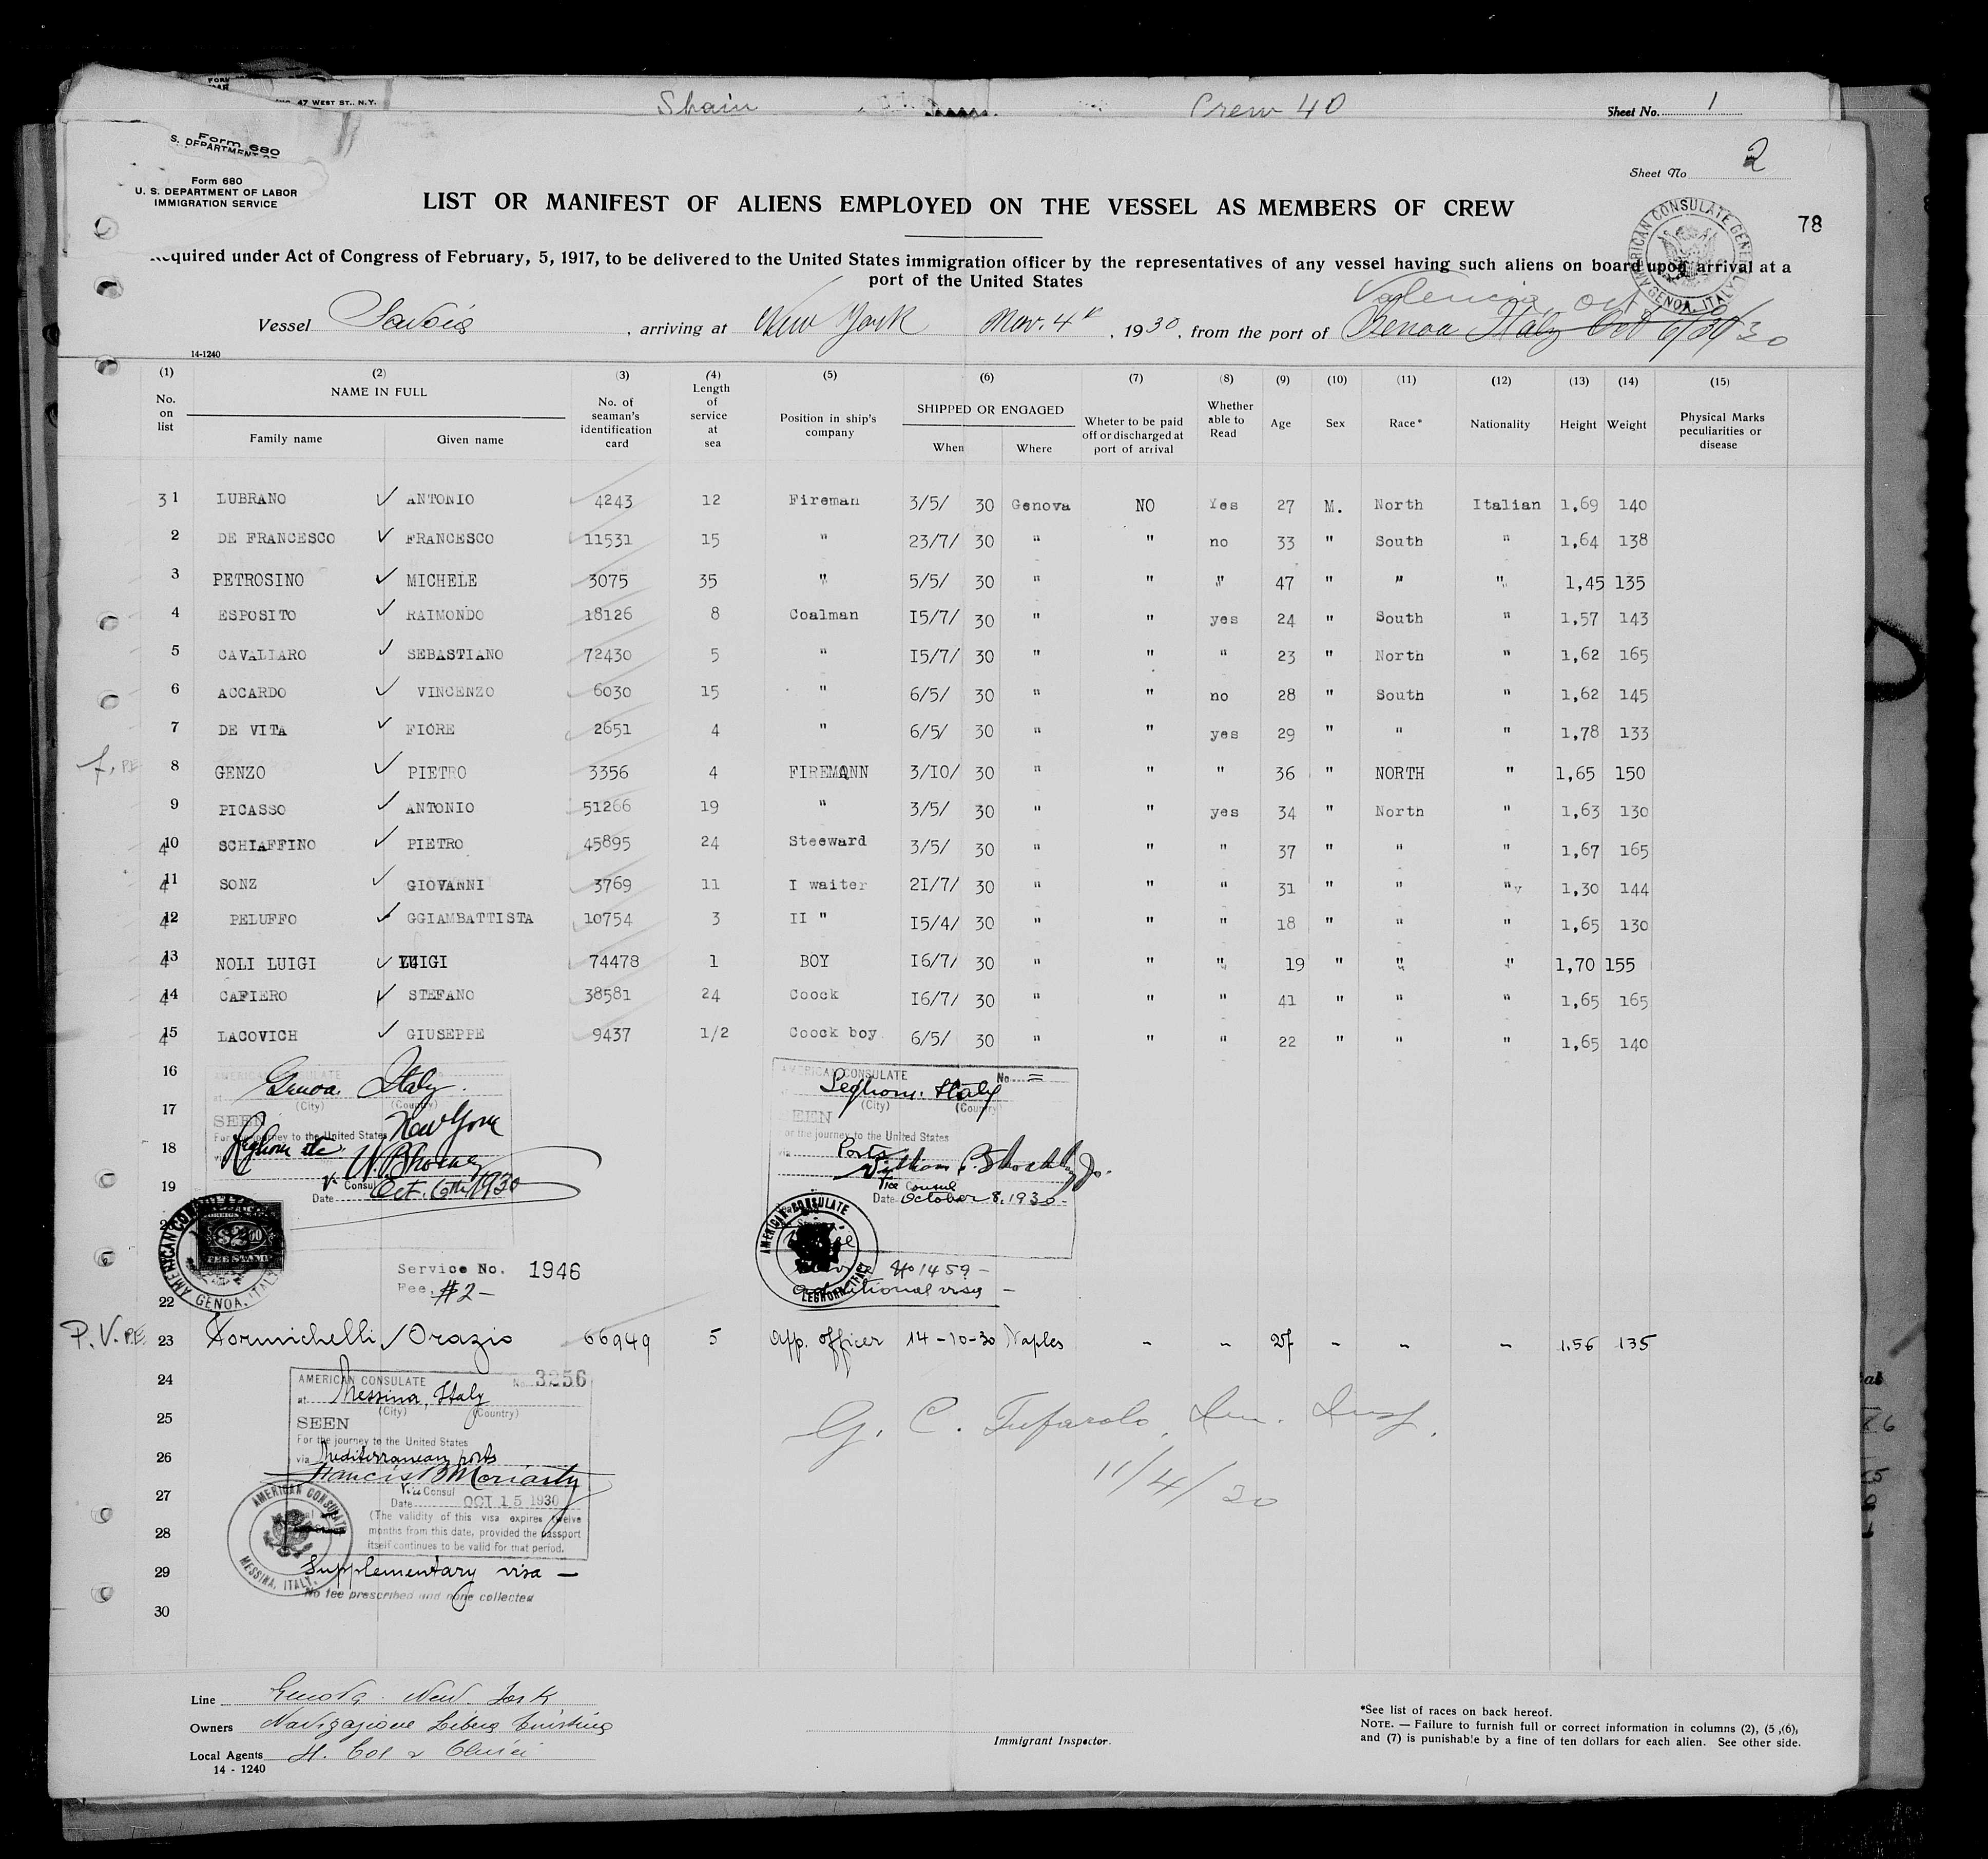 47 WEST ST., N.Y.
Spain
Crew 40
Sheet No. 1
Form 680
S. DEPARTMENT OF
Sheet No 2
Form 680
U. S. DEPARTMENT OF LABOR
IMMIGRATION SERVICE
LIST OR MANIFEST OF ALIENS EMPLOYED ON THE VESSEL AS MEMBERS OF CREW
78
AMERICAN CONSULATE GENERAL GENOA, ITALY
equired under Act of Congress of February, 5, 1917, to be delivered to the United States immigration officer by the representatives of any vessel having such aliens on board upon arrival at a
port of the United States
Valencia, Oct
Vessel Savoia, arriving at New York Nov. 4th, 1930, from the port of Genoa Italy Oct 30
14-1240
(1) (2) (3) (4) (5) (6) (7) (8) (9) (10) (11) (12) (13) (14) (15)
No. on list NAME IN FULL Family name Given name No. of seaman's identification card Length of service at sea Position in ship's company SHIPPED OR ENGAGED When Where Wheter to be paid off or discharged at port of arrival Whether able to Read Age Sex Race* Nationality Height Weight Physical Marks peculiarities or disease
31 LUBRANO ✓ ANTONIO 4243 12 Fireman 3/5/ 30 Genova NO Yes 27 M. North Italian 1,69 140
2 DE FRANCESCO ✓ FRANCESCO 11531 15 " 23/7/ 30 " " no 33 " South " 1,64 138
3 PETROSINO ✓ MICHELE 3075 35 " 5/5/ 30 " " " 47 " " " 1,45 135
4 ESPOSITO ✓ RAIMONDO 18126 8 Coalman I5/7/ 30 " " yes 24 " South " 1,57 143
5 CAVALIARO ✓ SEBASTIANO 72430 5 " I5/7/ 30 " " " 23 " North " 1,62 165
6 ACCARDO ✓ VINCENZO 6030 15 " 6/5/ 30 " " no 28 " South " 1,62 145
7 DE VITA ✓ FIORE 2651 4 " 6/5/ 30 " " yes 29 " " " 1,78 133
8 GENZO ✓ PIETRO 3356 4 FIREMANN 3/I0/ 30 " " " 36 " NORTH " 1,65 150
9 PICASSO ✓ ANTONIO 51266 19 " 3/5/ 30 " " yes 34 " North " 1,63 130
410 SCHIAFFINO ✓ PIETRO 45895 24 Steeward 3/5/ 30 " " " 37 " " " 1,67 165
411 SONZ ✓ GIOVANNI 3769 11 I waiter 2I/7/ 30 " " " 31 " " " 1,30 144
412 PELUFFO ✓ GGIAMBATTISTA 10754 3 II " I5/4/ 30 " " " 18 " " " 1,65 130
413 NOLI LUIGI ✓ LUIGI 74478 1 BOY I6/7/ 30 " " " 19 " " " 1,70 155
414 CAFIERO ✓ STEFANO 38581 24 Coock I6/7/ 30 " " " 41 " " " 1,65 165
415 LACOVICH ✓ GIUSEPPE 9437 1/2 Coock boy 6/5/ 30 " " " 22 " " " 1,65 140
16
17
18
19
22
AMERICAN CONSULATE
at Genoa, Italy.
(City) (Country)
SEEN
For the journey to the United States New York
Leghorn etc.
V. Consul
Date Oct. 6th 1930
AMERICAN CONSULATE GENOA, ITALY
$2.00
FEE STAMP
Service No. 1946
Fee. $2-
AMERICAN CONSULATE No. =
Leghorn. Italy
(City) (Country)
SEEN
For the journey to the United States
via Ports
William P. Shockley Jr.
Vice Consul
Date October 8, 1930-
AMERICAN CONSULATE LEGHORN, ITALY
No 1459-
additional visa -
P.V. P.E. 23 Formichelli ✓ Orazio 66949 5 App. officer 14-10-30 Naples - - 27 - - - 1.56 135
24
25
26
27
28
29
30
AMERICAN CONSULATE No. 3256
at Messina, Italy
(City) (Country)
SEEN
For the journey to the United States
via Mediterranean ports
Francis B Moriarty
Vice Consul
Date OCT 15 1930
(The validity of this visa expires twelve
months from this date, provided the passport
itself continues to be valid for that period.
AMERICAN CONSULATE MESSINA, ITALY.
Supplementary visa -
No fee prescribed and none collected
G. C. Tufarolo, Im. Insp.
11/4/30
Line Genova - New York
Owners Navigazione Libera Triestina
Local Agents
14 - 1240
Immigrant Inspector.
*See list of races on back hereof.
NOTE. — Failure to furnish full or correct information in columns (2), (5 ,(6),
and (7) is punishable by a fine of ten dollars for each alien. See other side.